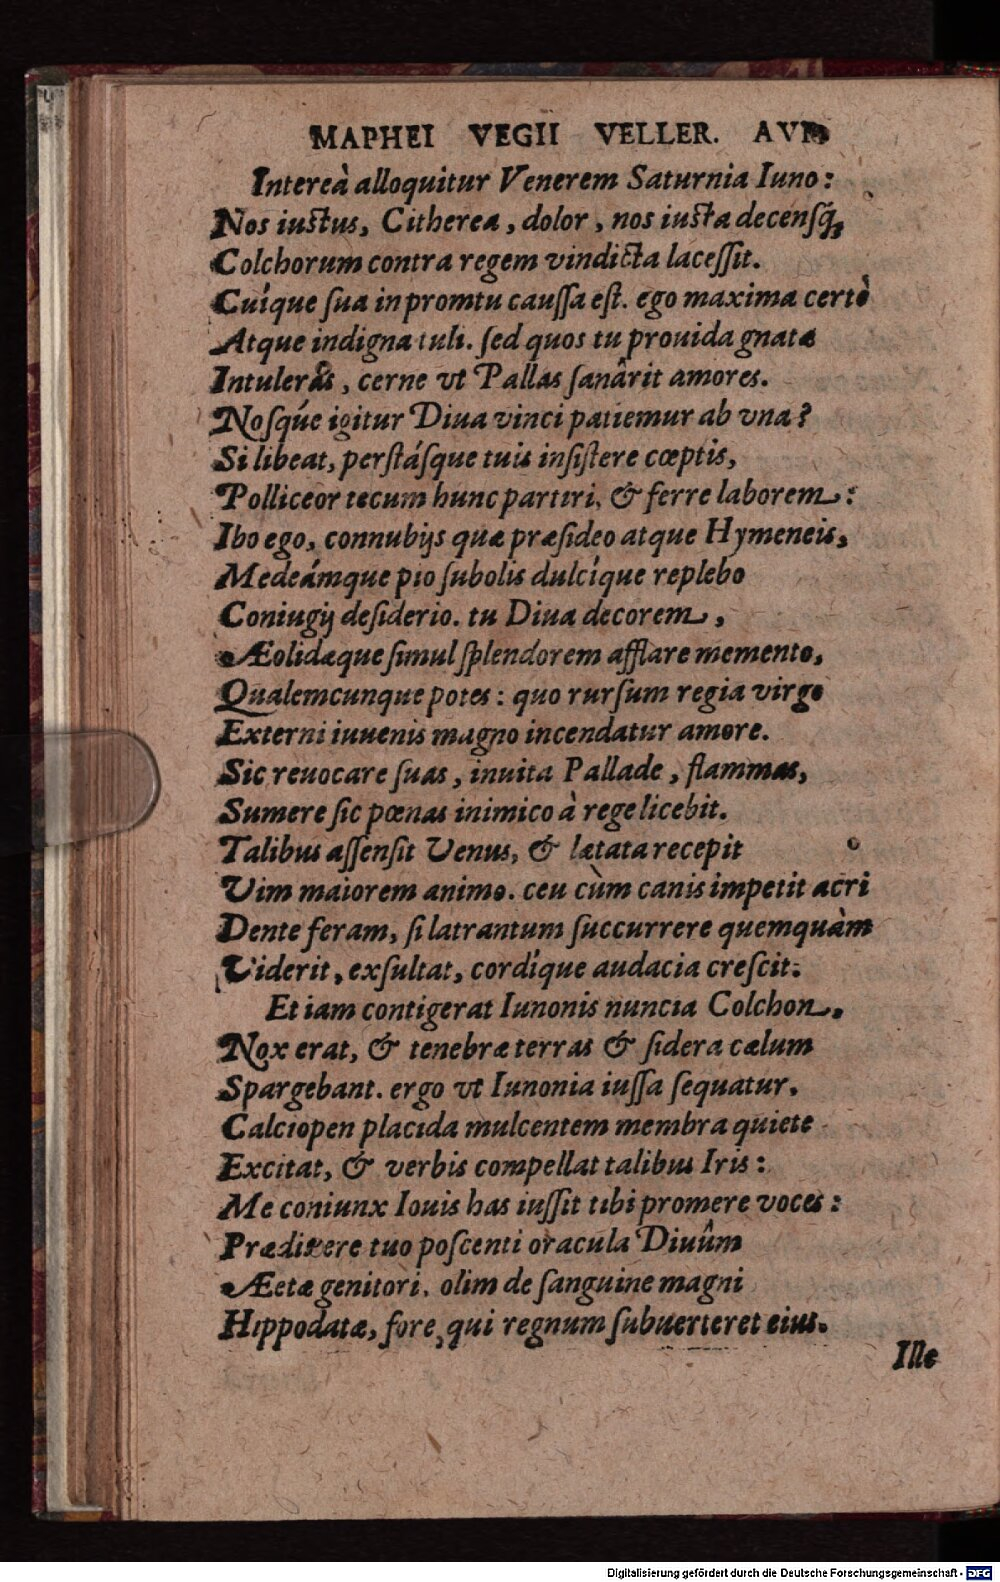 MAPHEI VEGII VELLER. AVR
Intereà alloquitur Venerem Saturnia Iuno:
Nos iustus, Citherea, dolor, nos iusta decensq́;
Colchorum contra regem vindicta lacessit.
Cuíque sua in promtu caussa est. ego maxima certè
Atque indigna tuli. sed quos tu prouida gnatæ
Intuleras, cerne vt Pallas sanârit amores.
Nosqúe igitur Diua vinci patiemur ab vna?
Si libeat, perstásque tuis insistere cœptis,
Polliceor tecum hunc partiri, & ferre laborem:
Ibo ego, connubijs quæ præsideo atque Hymeneis,
Medeámque pio subolis dulcíque replebo
Coniugij desiderio. tu Diua decorem,
Æolidæque simul splendorem afflare memento,
Qualemcunque potes: quo rursum regia virgo
Externi iuuenis magno incendatur amore.
Sic reuocare suas, inuita Pallade, flammas,
Sumere sic pœnas inimico à rege licebit.
Talibus assensit Venus, & lætata recepit
Vim maiorem animo. ceu cùm canis impetit acri
Dente feram, si latrantum succurrere quemquàm
Viderit, exsultat, cordíque audacia crescit.
Et iam contigerat Iunonis nuncia Colchon,
Nox erat, & tenebræ terras & sidera cælum
Spargebant. ergo vt Iunonia iussa sequatur,
Calciopen placida mulcentem membra quiete
Excitat, & verbis compellat talibus Iris:
Me coniunx Iouis has iussit tibi promere voces:
Prædixere tuo poscenti oracula Diuûm
Æetæ genitori, olim de sanguine magni
Hippodatæ, fore, qui regnum subuerteret eius.
Ille
Digitalisierung gefördert durch die Deutsche Forschungsgemeinschaft - DFG